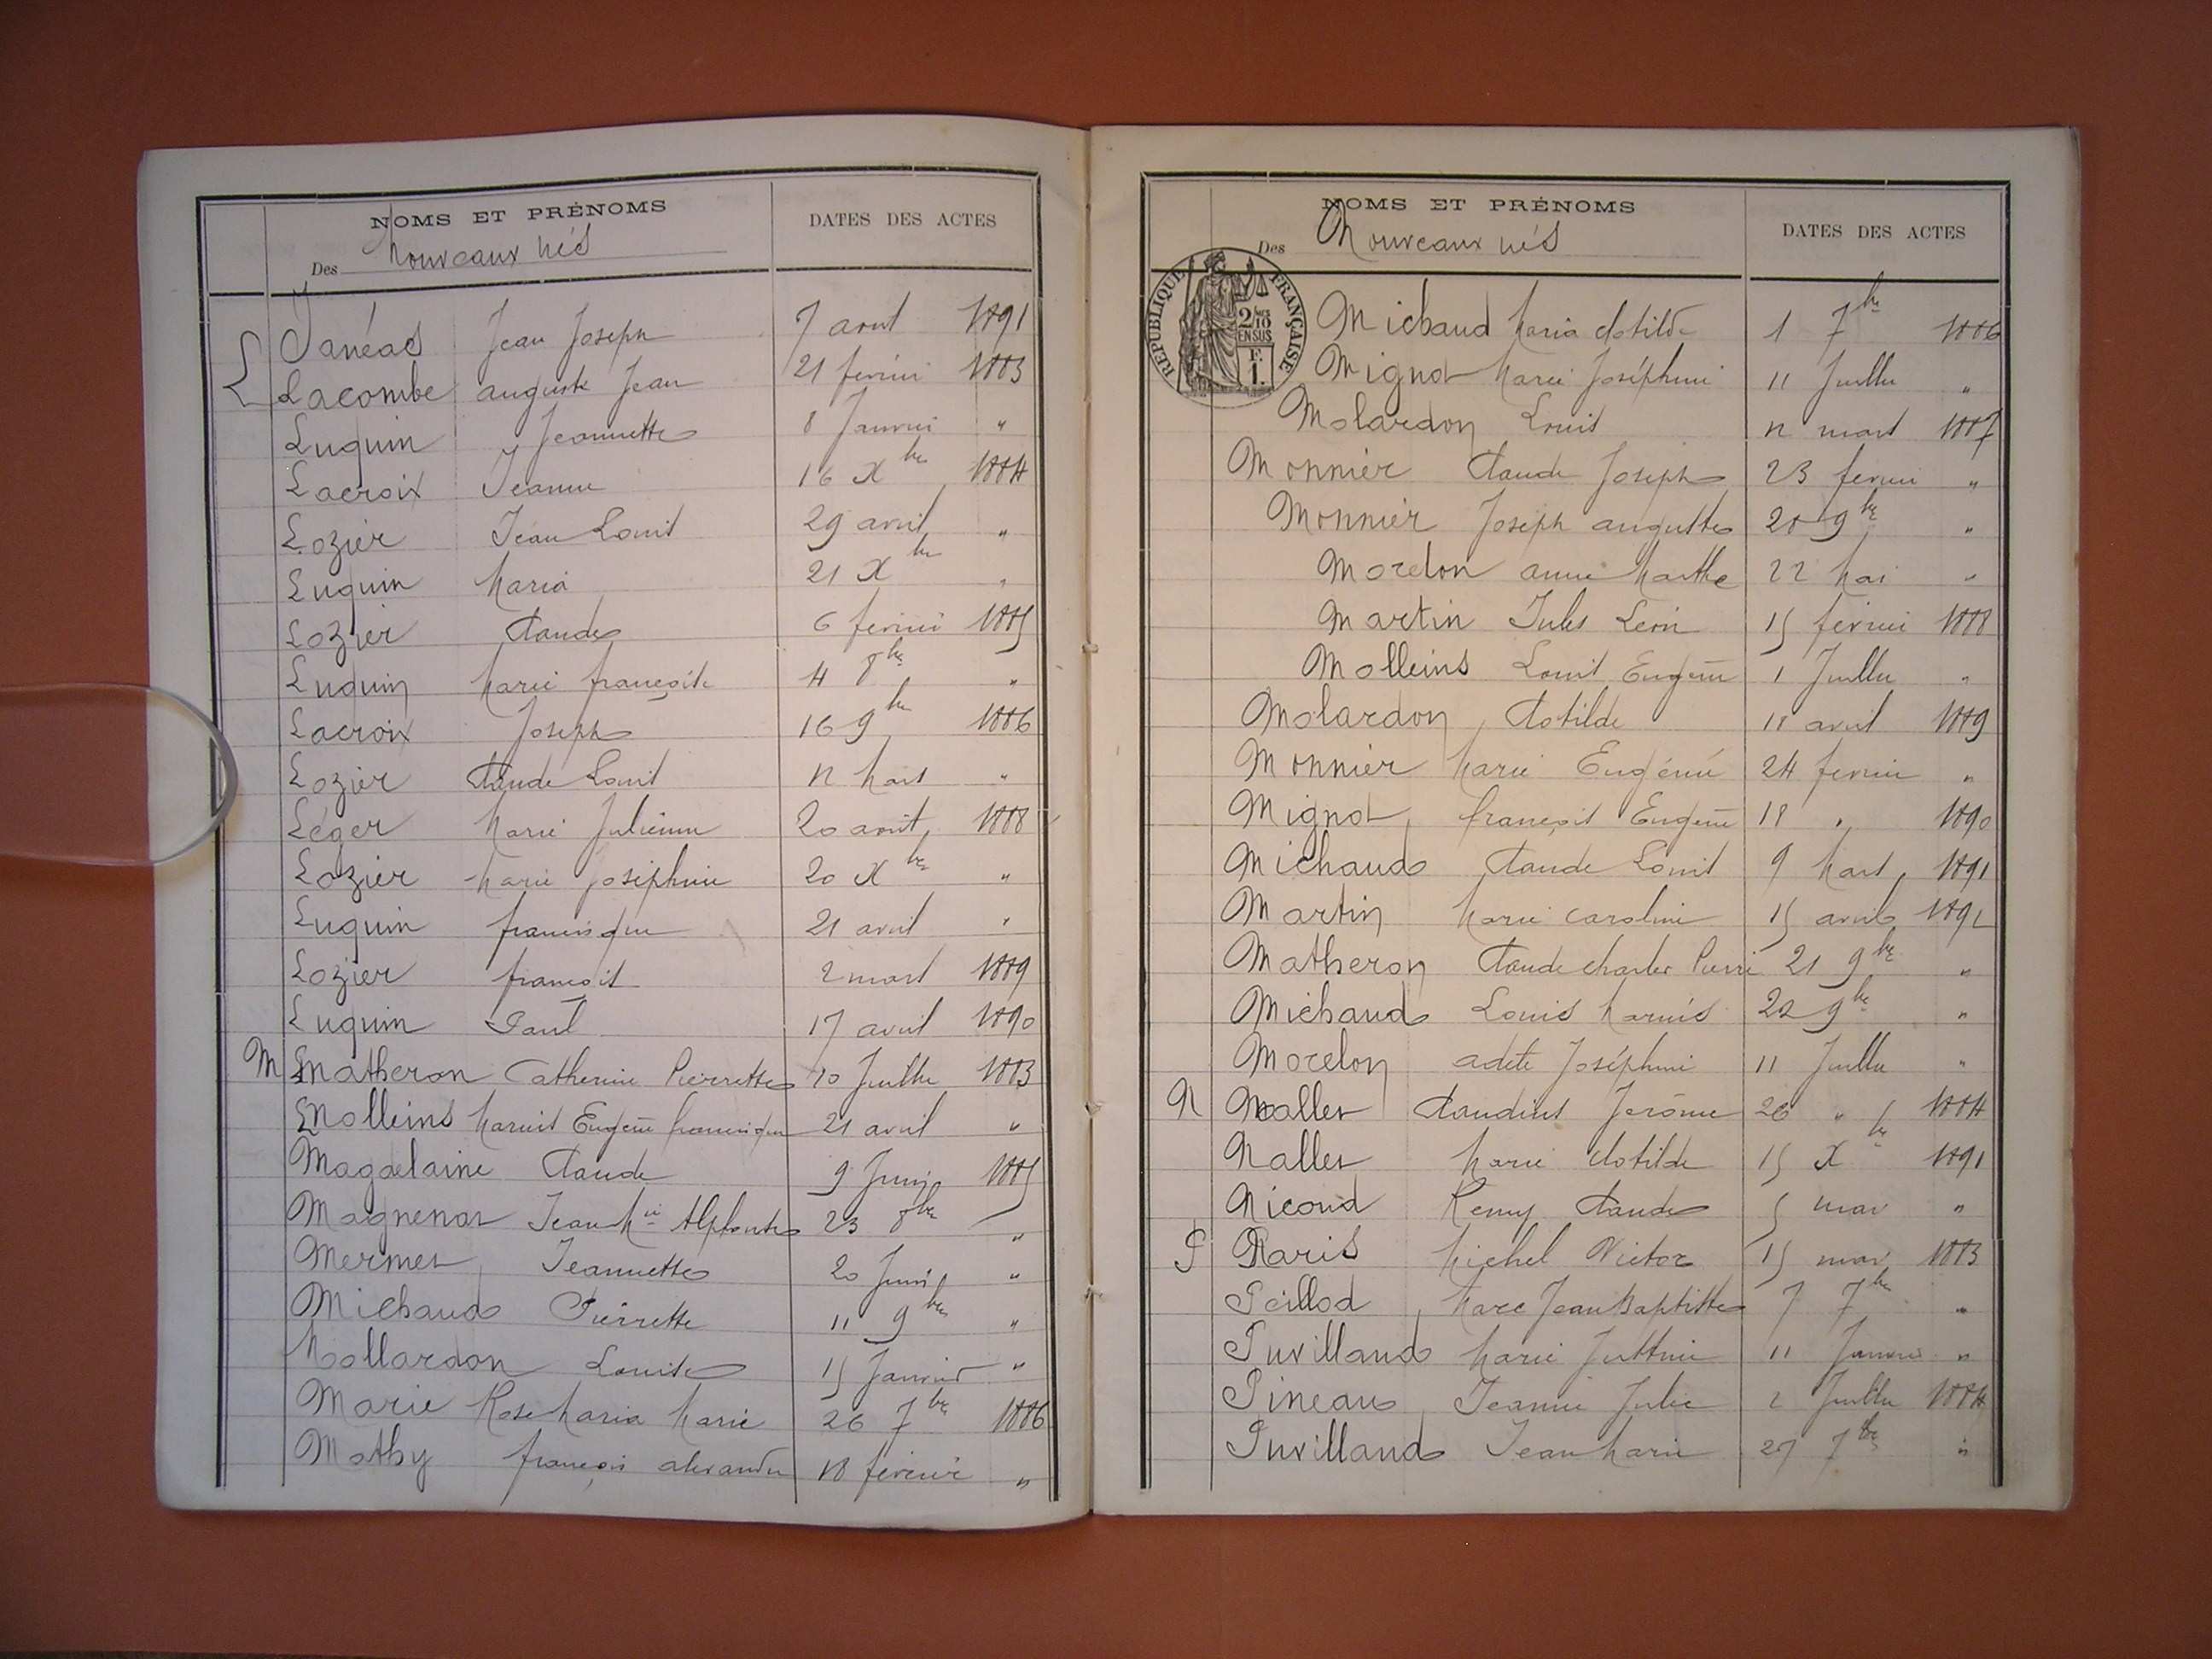 NOMS ET PRÉNOMS
DATES DES ACTES
Des Nouveaux nés
Janéas Jean Joseph 7 avril 1891
L Lacombe auguste Jean 21 février 1883
Luquin Jeannette 8 Janvier "
Lacroix Jeanne 16 Xbre 1884
Lozier Jean Louis 29 avril "
Luquin Maria 21 Xbre "
Lozier Claude 6 février 1885
Luquin Marie françoise 4 8bre "
Lacroix Joseph 16 9bre 1886
Lozier Claude Louis 12 Mars "
Léger Marie Julienne 20 août 1888
Lozier Marie Joséphine 20 Xbre "
Luquin francisque 21 avril "
Lozier françois 2 mars 1889
Luquin Paul 17 avril 1890
M Matheron Catherine Pierrette 10 Juillet 1883
Molleins Marius Eugène francisque 21 avril "
Magdelaine Claude 9 Juin 1885
Magnenat Jean Mie Alphonse 23 8bre "
Mermet Jeannette 20 Juin "
Michaud Pierrette 11 9bre "
Mollardon Louise 15 Janvier "
Marie Rose Maria Marie 26 7bre 1886
Mathy françois alexandre 18 février "
NOMS ET PRÉNOMS
DATES DES ACTES
Des Nouveaux nés
RÉPUBLIQUE FRANÇAISE
2/10 EN SUS
F. 1.
Michaud Maria Clotilde 1 7bre 1886
Mignot Marie Joséphine 11 Juillet "
Molardon Louis 12 mars 1887
Monnier Claude Joseph 23 février "
Monnier Joseph auguste 20 9bre "
Morelon anne Marthe 22 Mai "
Martin Jules Léon 15 février 1888
Molleins Louis Eugène 1 Juillet "
Molardon Clotilde 18 avril 1889
Monnier Marie Eugénie 24 février "
Mignot françois Eugène 18 " 1890
Michaud Claude Louis 9 Mars 1891
Martin Marie Caroline 15 avril 1892
Matheron Claude Charles Pierre 21 9bre "
Michaud Louis Marius 22 9bre "
Morelon adèle Joséphine 11 Juillet "
N Nallet Claudius Jérôme 26 " 1884
Nallet Marie Clotilde 15 Xbre 1891
Nicoud Remy Claude 5 mai "
P Paris Michel Victor 15 mai 1883
Peillod Marc Jean Baptiste 7 7bre "
Puvilland Marie Justine 11 Janvier "
Pineau Jeanne Julie 2 Juillet 1884
Puvilland Jean Marie 27 7bre "